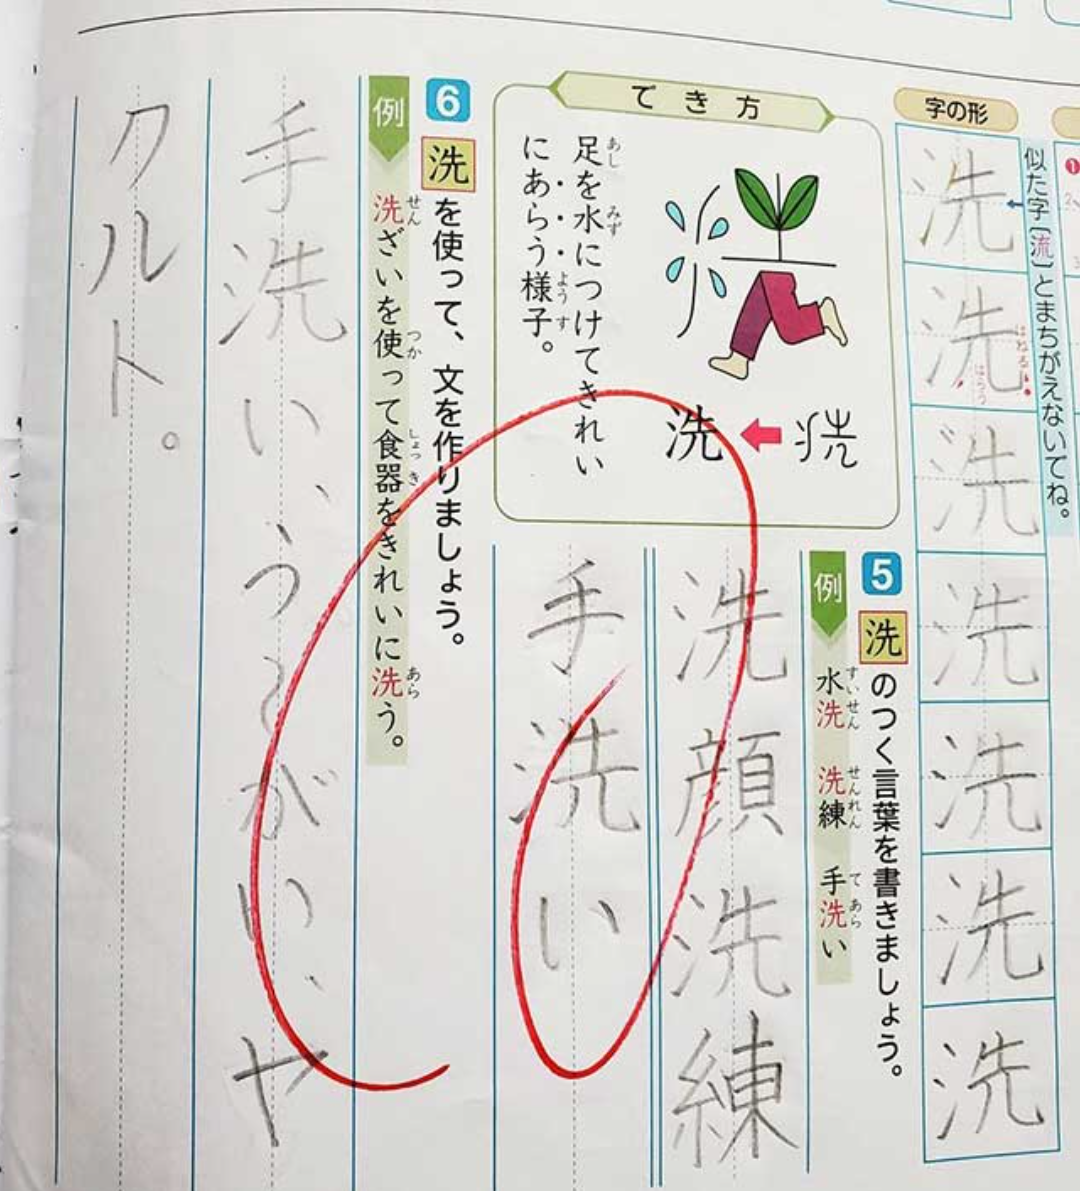 字の形
似た字〔流〕とまちがえないでね。
洗
洗
はねる
はらう
洗
洗
洗
洗
洗
でき方
足を水につけてきれい
あし みず
にあらう様子。
ようす
洗
5 洗のつく言葉を書きましょう。
例 水洗 洗練 手洗い
すいせん せんれん てあら
洗顔洗練
手洗い
6 洗を使って、文を作りましょう。
例 洗ざいを使って食器をきれいに洗う。
せん つか しょっき あら
手洗い、うがい、ヤ
クルト。